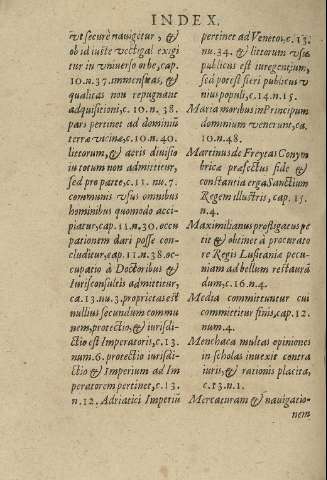 INDEX.
vt securè nauigetur, &
ob id iuste vectigal exigi
tur in vniuerso orbe, cap.
10. n. 37. immensitas, &
qualitas non repugnant
adquisitioni, c. 10. n. 38.
pars pertinet ad dominiũ
terræ vicinæ, c. 10. n. 40.
littorum, & actis diuisio
in totum non admittitur,
sed pro parte, c. 11. nu. 7.
communis vsus omnibus
hominibus quomodo acci-
piatur, cap. 11. n. 30. occu
pationem dari posse con-
cluditur, cap. 11. n. 38. oc-
cupatio à Doctoribus &
Iurisconsultis admittitur,
ca. 13. nu. 3. proprietas est
nullius secundum commu
nem, protectio, & iurisdi-
ctio est Imperatoris, c. 13.
num. 6. protectio iurisdi-
ctio & Imperium ad Im
peratorem pertinet, c. 13.
n. 12. Adriatici Imperiũ
pertinet ad Venetos, c. 13.
nu. 34. & littorum vsus
publicus est iure gentium,
sed potest fieri publicus v
nius populi, c. 14. n. 15.
Maria moribus in Principum
dominium venerunt, ca.
10. n. 48.
Martinus de Freytas Conym
bricæ præfectus fide &
constantia erga Sanctium
Regem illustris, cap. 15.
n. 4.
Maximilianus profligatus pe
tit & obtinet à procurato
re Regis Lusitaniæ pecu-
niam ad bellum restaurã
dum, c. 16. n. 4.
Media committuntur cui
committitur finis, cap. 12.
num. 4.
Menchaca multas opiniones
in scholas inuexit contra
iuris, & rationis placita,
c. 13. n. 1.
Mercaturam & nauigatio-
nem